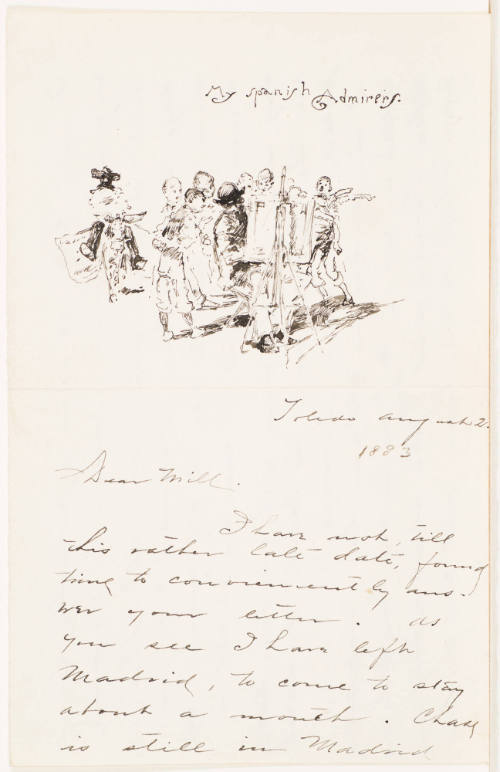 My Spanish Admirers.
Toledo August 2.
1883
Dear Will.
I have not, till
this rather late date, found
time to conveniently ans-
wer your letter. As
you see I have left
Madrid, to come to stay
about a month. Chase
is still in Madrid